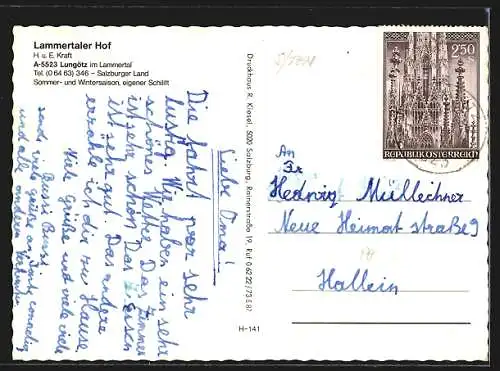 Lammertaler Hof
H. u. E. Kraft
A-5523 Lungötz im Lammertal
Tel. (0 64 63) 346 – Salzburger Land
Sommer- und Wintersaison, eigener Schilift
Liebe Oma!
Die Fahrt war sehr
lustig. Wir haben ein sehr
schönes Wetter. Das Zimmer
ist sehr schön. Das Essen
ist sehr gut. Das andere
erzähle ich dir zu Hause.
Viele Grüße und viele
Bussi Bussi
send viele grüße an
und alle anderen Verwandten
Druckhaus R. Kiesel, 5020 Salzburg, Rainerstraße 19, Ruf 0 62 22 / 73 5 87
H-141
2.50
S
REPUBLIK ÖSTERREICH
An
Fr
Hedwig Müllechner
Neue Heimat straße 9
Hallein